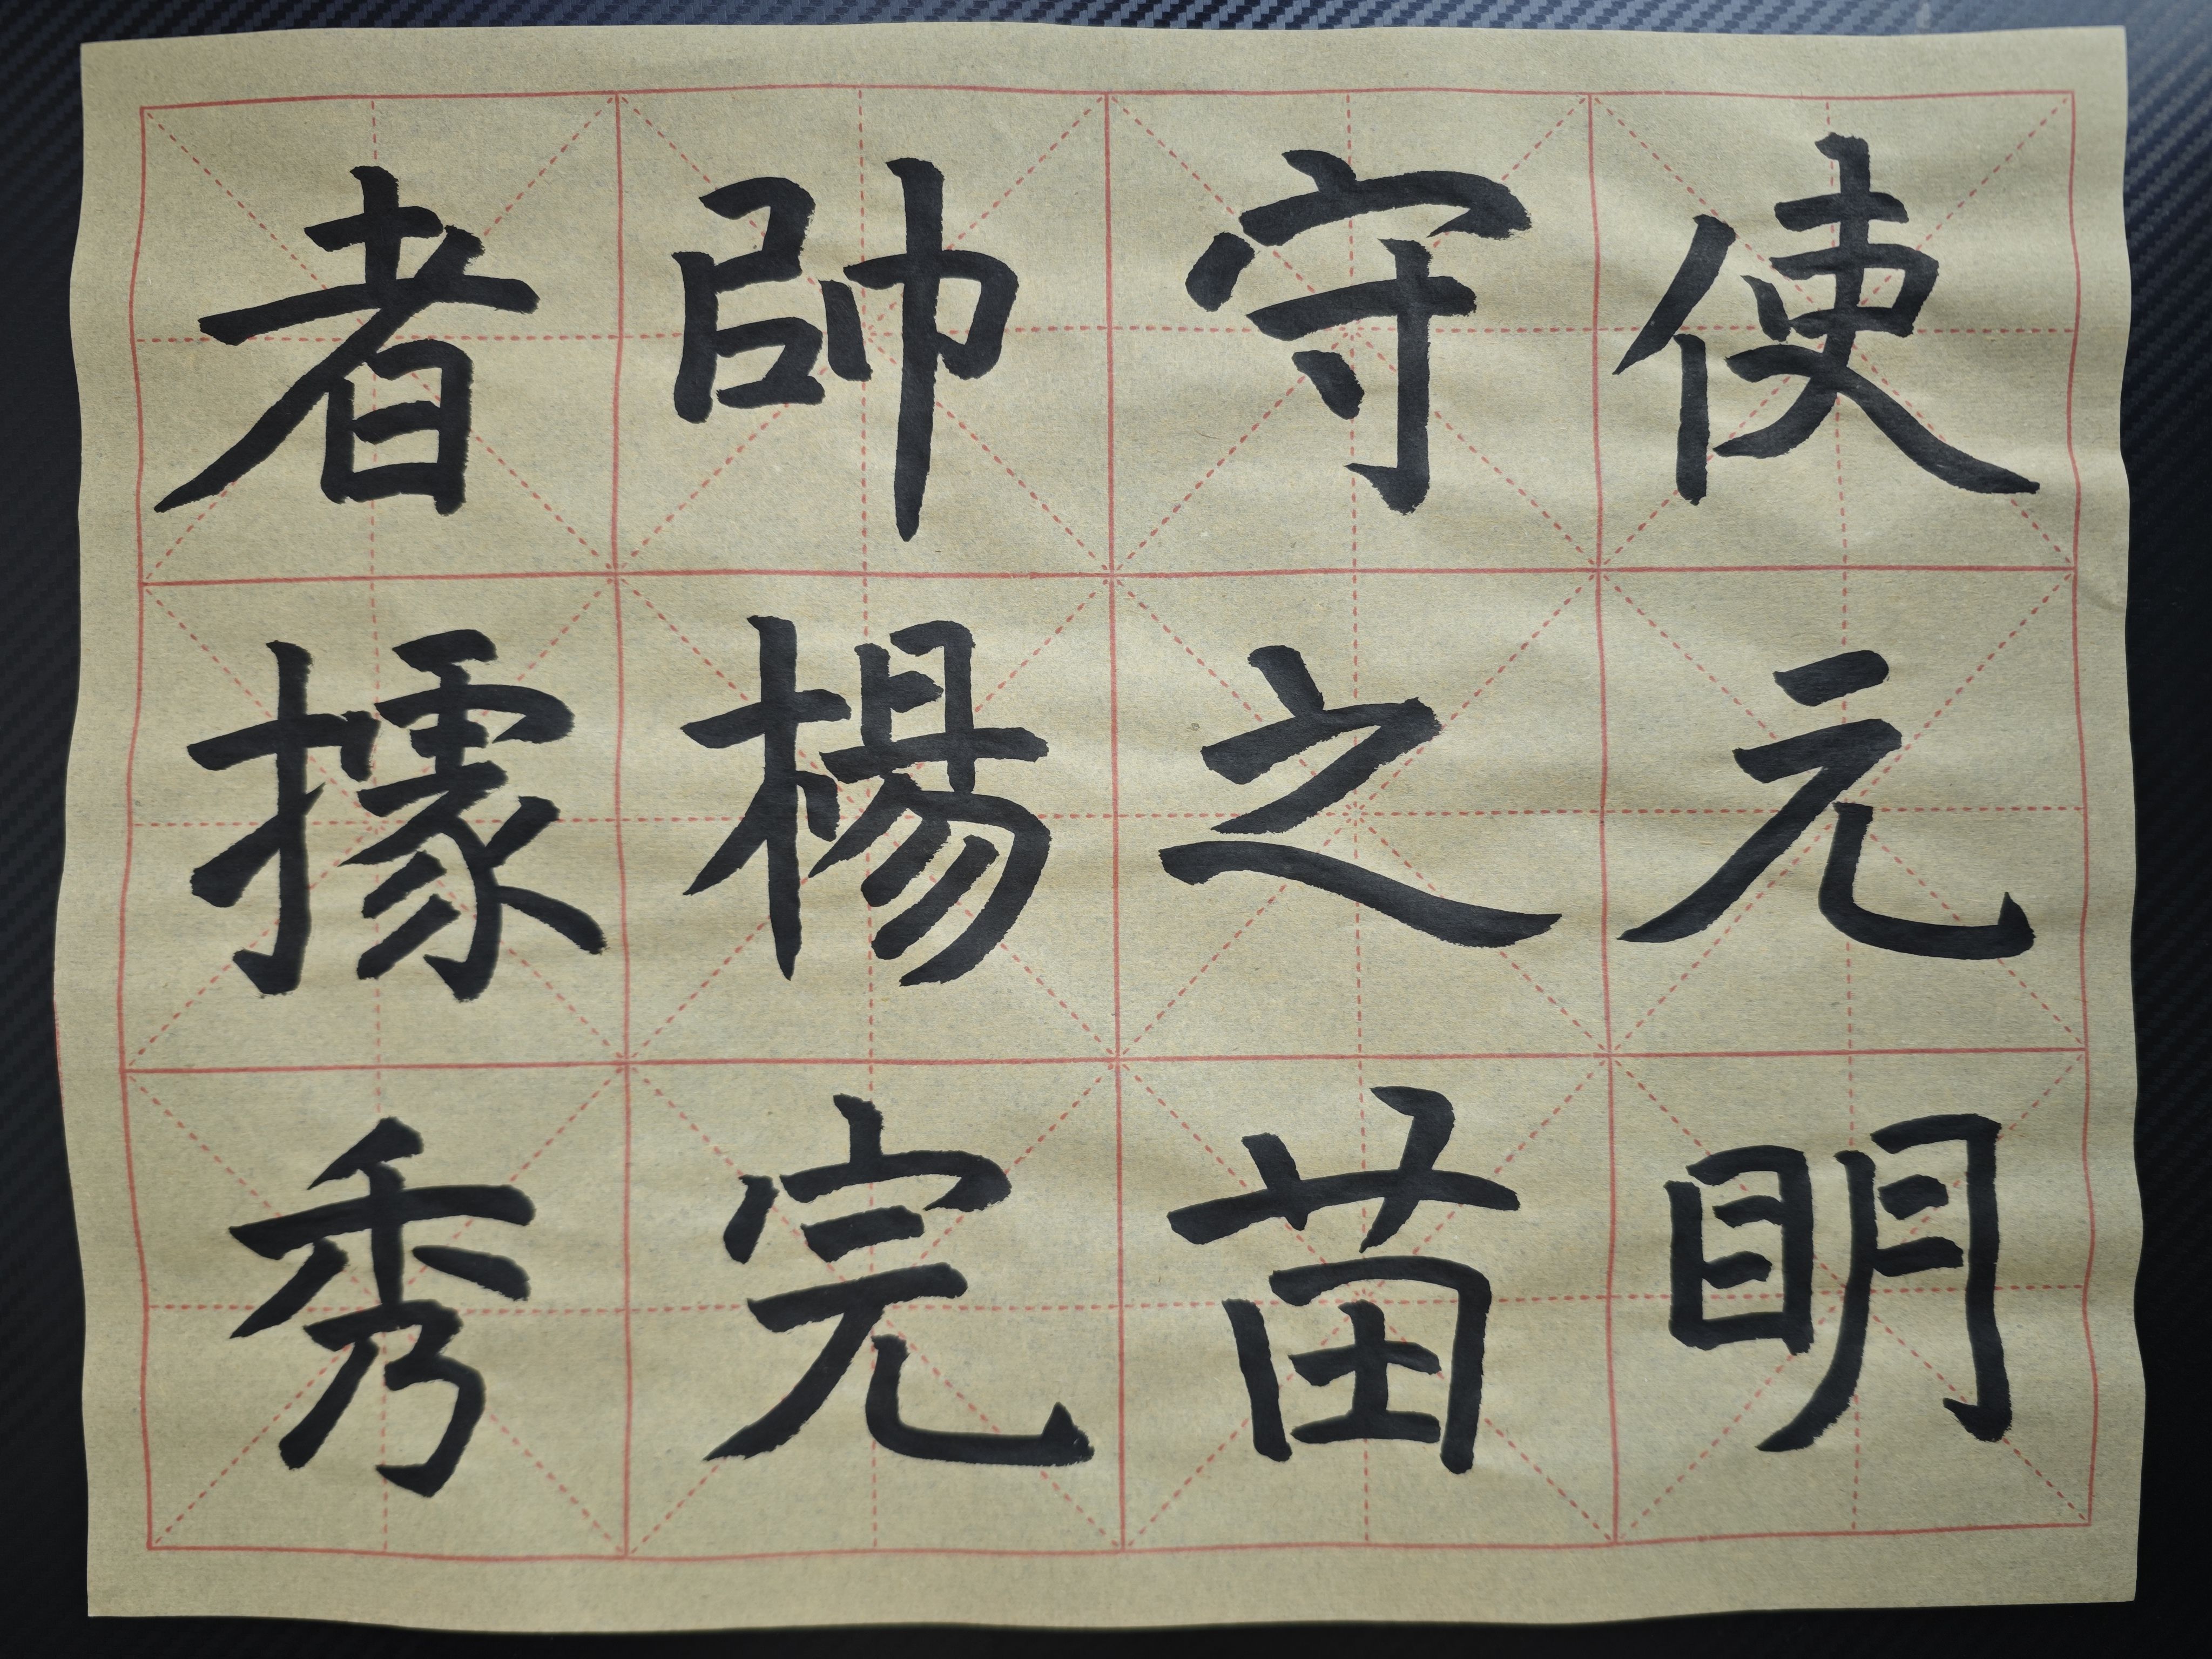 使元眀
守之苗
帥楊完
者據秀